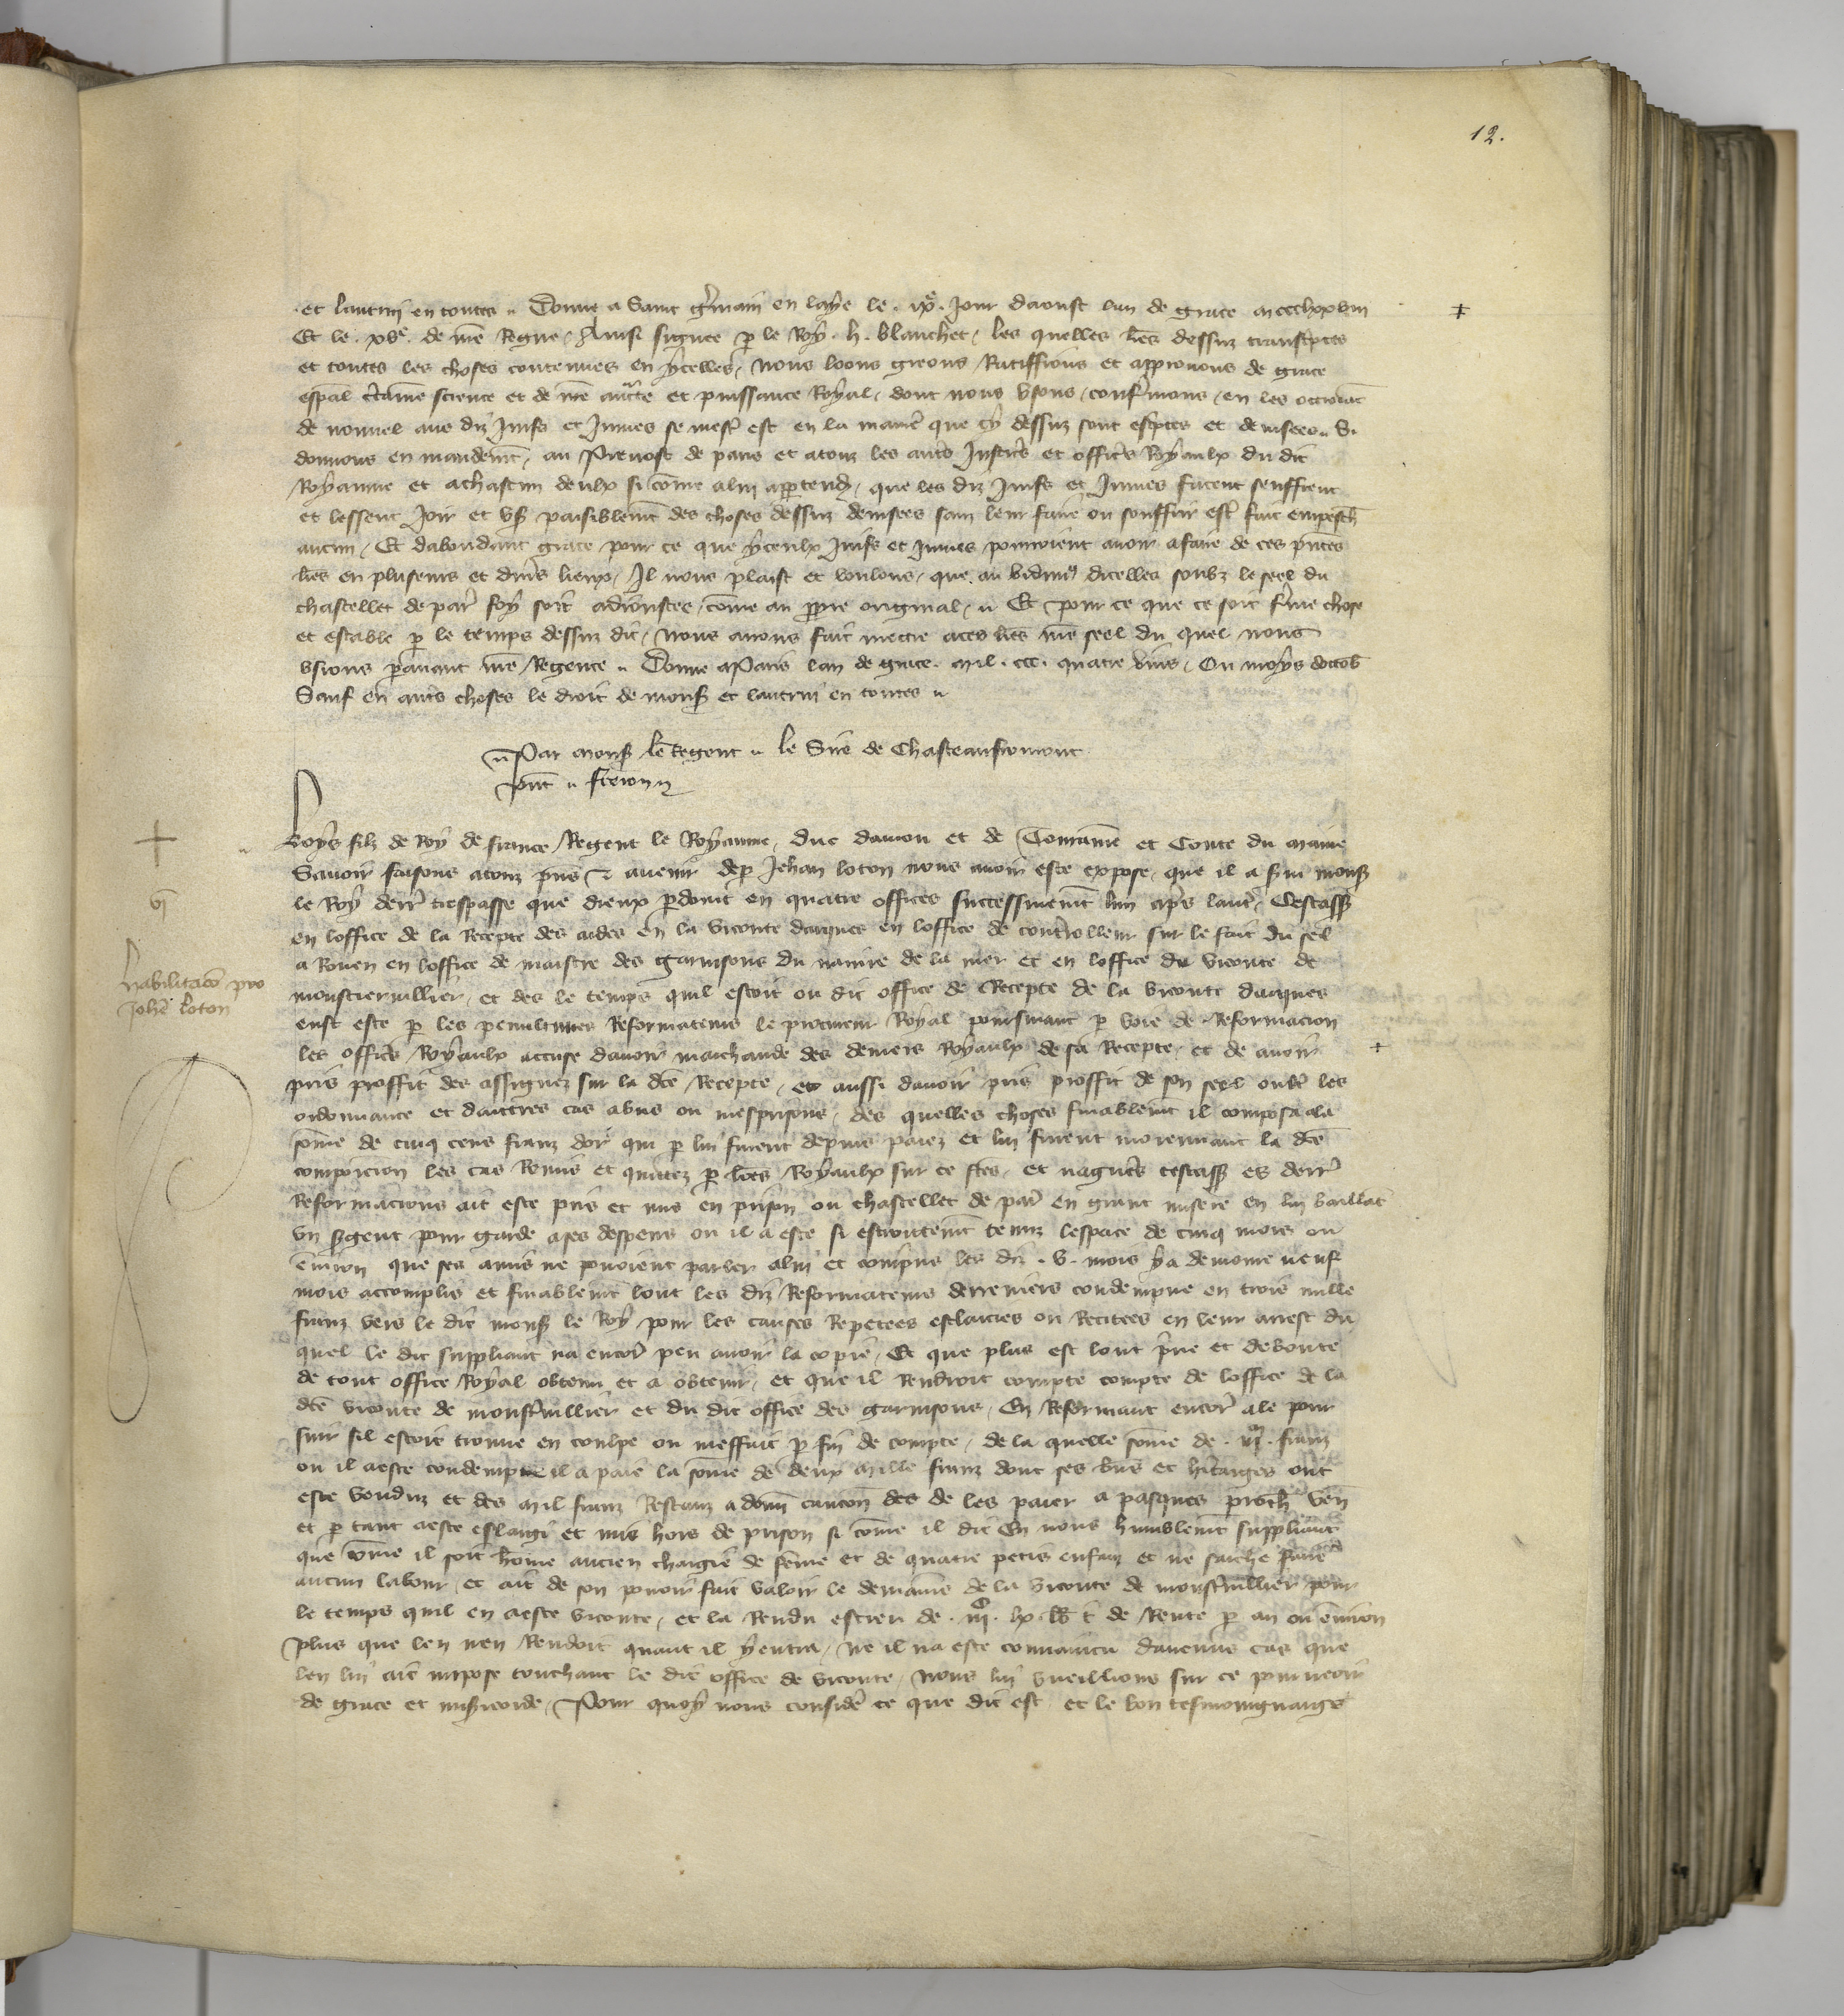 12.
et lautrui en toutes. Donne a Saint g'main en laye le .ixe. Jour daoust lan de grace mccclxxviii
Et le .xve. de nre Regne. Ainsi signee p le Roy. h. blanchet. les quelles lres dessuz transcptes
et toutes les choses contenues en ycelles, Nous loons greons Ratiffions et approuvons de grace
espal ctaine science et de nre aucte et puissance Royal, dont nous usons, confermons, en les octroiat
de nouvel aus diz Juifs et Juives se mest est en la manie que cy dessuz sont escptes et devisees. Si
donnons en mandemt, au Prevost de paris et a touz les autres Justiciers et officrs Royaulx du dit
Royaume et a chascun deulx si come a lui appartendra, que les diz Juifs et Juives facent seuffrent
et lessent Joir et user paisiblemt des choses dessuz devisees sanz leur faire ou souffrir estre fait empescht
aucun, Et dabondant grace pour ce que yceulx Juifs et Juives pourroient avoir a faire de ces pntes
lres en pluseurs et divrs lieux, Il nous plaist et voulons, que au vidimus dicelles soubz le seel du
chastellet de par foy soit adioustee, come au ppre original. Et pour ce que ce soit ferme chose
et estable p le temps dessuz dit, nous avons fait mettre a ces lres nre seel du quel nous
usions pavant nre Regence. Donne a Paris lan de grace mil .ccc. quatre vins, Ou moys doctob
Sauf en autrs choses le droit de mons et lautrui en toutes
Par mons le Regent. le Sire de Chasteaufromont
pnt. freron
Loys filz de Roy de france Regent le Royaume, duc danjou et de Touraine et Conte du maine
Savoir faisons a touz pns & avenir de p Jehan loton nous avoir este expose, que il a svi mons
le Roy derr trespasse que dieux pdoint en quatre offices successivemt lun aprs lautre, Cestass
en loffice de la Recepte des aides en la viconte darques en loffice de controlleur sur le fait du sel
a Rouen en loffice de maistre des garnisons du navire de la mer et en loffice de viconte de
monstiervillier, et des le temps quil estoit ou dit office de Recepte de la viconte darques
eust este p les penultimes Reformateurs le procureur Royal poursuiant p voie de Reformacion
les officrs Royaulx accuse davoir marchande des deniers Royaulx de sa Recepte, et de avoir
pris proffit des assignez sur la dce Recepte, et aussi davoir pris proffit de son seel oultre les
ordonnance et dauttres cas abus ou mesprisons, des quelles choses finablemt il composa a la
some de cinq cens franz dor qui p lui furent depuis paiez et lui furent moiennant la dce
composicion les cas Remis et quittez p lres Royaulx sur ce fces, et nagures cestass es derr
Reformacions ait este pris et mis en prison ou chastellet de par en grant misere en lui baillat
un sgent pour garde a ses despens ou il a este si estroictemt tenuz lespace de cinq mois ou
environ que ses amis ne povoient parler a lui et compris les diz .v. mois y a demoure neuf
mois accomplis et finablemt lont les diz Reformateurs derreniers condempne en trois mille
franz vers le dit mons le Roy pour les causes Repetees esclarcies ou Recitees en leur arrest du
quel le dit suppliant na encor peu avoir la copie, Et que plus est lont prive et deboute
de tout office Royal obtenu et a obtenir, et que il Rendroit compte compte de loffice de la
dce viconte de monstrvillier et du dit office des garnisons, En Reservant encore a le pour
suir sil estoit trouve en coulpe ou meffait p fin de compte, de la quelle some de .iiim. franz
ou il a este condempne il a paie la some de deux mille franz dont ses biens et hitaiges ont
este venduz et des mil franz Restanz a donn caucon des de les paier a pasques proch ven
et p tant a este eslargi et mis hors de prison si come il dit En nous humblemt suppliant
que come il soit home ancien chargie de feme et de quatre petis enfanz et ne sache faire
aucun labour, et ait de son povoir fait valoir le demaine de la viconte de monstrvillier pour
le temps quil en a este viconte, et la Rendu escreu de .iiic. lx lb t de Rente p an ou environ
plus que len nen Rendoit quant il y entra, ne il na este convaincu daucuns cas que
len lui ait impose touchant le dit office de viconte, Nous lui vueillions sur ce pourveoir
de grace et misicorde, Pour quoy nous consider ce que dit est et le bon tesmoignaige
vi
habilitaco pro
Johe loton